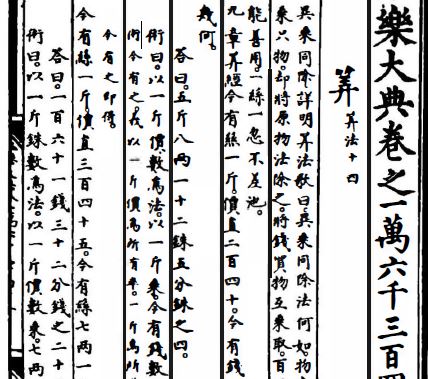 樂大典卷之一萬六千三百四
筭 筭法十四
異乘同除詳明筭法歌曰異乘同除法何如。物
乘只物。却將原物法除之。將錢買物互乘取。百
能善用。一絲一忽不差池。
九章筭經今有絲一斤。價直二百四十。今有錢
幾何。
荅曰。五斤八兩一十二銖五分銖之四。
術曰。以一斤價數為法。以一斤乘今有錢數
術今有之義以一斤價為所有率。一斤為所
今有之即得。
今有絲一斤。價直三百四十五。今有絲七兩一
荅曰。一百六十一錢三十二分錢之二十
術曰。以一斤銖數為法。以一斤價數乘。七兩